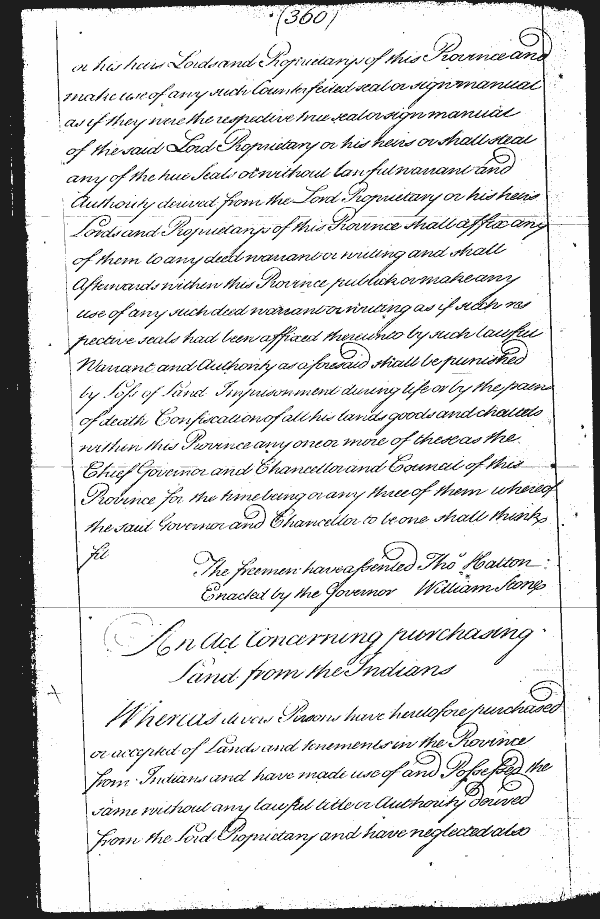 (360)
or his heirs Lords and Proprietarys of this Province and
make use of any such Counterfeited seal or sign manual
as if they were the respective true seal or sign manual
of the said Lord Proprietary or his heirs or shall steal
any of the true Seals or without lawful warrant and
Authority derived from the Lord Proprietary or his heirs
Lords and Proprietarys of this Province shall affix any
of them to any deed warrant or writing and shall
Afterwards within this Province publish or make any
use of any such deed warrant or writing as if such res
pective seals had been affixed thereunto by such lawful
Warrant and Authority as aforesaid shall be punished
by Loss of Land Imprisonment during life or by the pains
of death Confiscation of all his lands goods and chattels
within this Province any one or more of these as the
Chief Governor and Chancellor and Council of this
Province for the time being or any three of them whereof
the said Governor and Chancellor to be one shall think
fit
The freemen have assented Tho: Hatton
Enacted by the Governor William Stone
An Act Concerning purchasing
Land from the Indians
Whereas divers Persons have heretofore purchased
or accepted of Lands and tenements in the Province
from Indians and have made use of and Possessed the
same without any lawful title or Authority Derived
from the Lord Proprietary and have neglected also